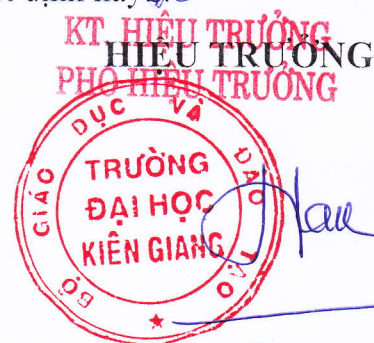 định này
KT HIỆU TRƯỞNG
HIỆU TRƯỞNG
PHÓ HIỆU TRƯỞNG
BỘ GIÁO DỤC VÀ ĐÀO TẠO
TRƯỜNG
ĐẠI HỌC
KIÊN GIANG